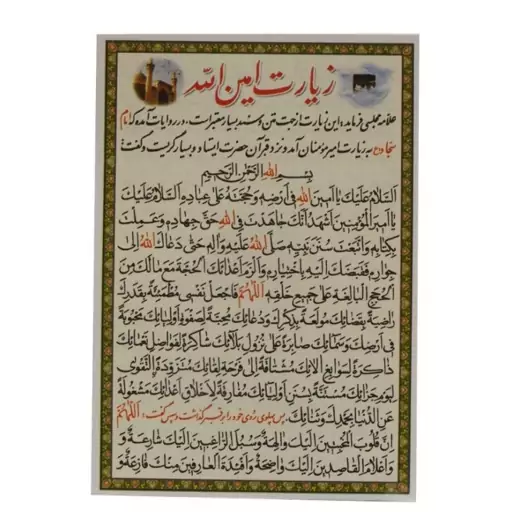 زیارت امین الله
علامه مجلسی فرماید: این زیارت از جهت متن و سند بسیار معتبر است، در روایات آمده که امام
سجاد (ع) به زیارت امیر مؤمنان آمد و نزد قبر آن حضرت ایستاد و بسیار گریست و گفت:
بِسْمِ اللهِ الرَّحْمٰنِ الرَّحیمِ
اَلسَّلامُ عَلَیْكَ یا اَمینَ اللهِ فی اَرْضِهِ وَ حُجَّتَهُ عَلی عِبادِهِ اَلسَّلامُ عَلَیْكَ
یا اَمیرَ الْمُؤْمِنینَ اَشْهَدُ اَنَّكَ جاهَدْتَ فِی اللهِ حَقَّ جِهادِهِ وَ عَمِلْتَ
بِكِتابِهِ وَ اتَّبَعْتَ سُنَنَ نَبِیِّهِ صَلَّی اللهُ عَلَیْهِ وَ الِهِ حَتّی دَعاكَ اللهُ اِلی
جِوارِهِ فَقَبَضَكَ اِلَیْهِ بِاخْتِیارِهِ وَ اَلْزَمَ اَعْدائَكَ الْحُجَّةَ مَعَ مالَكَ مِنَ
الْحُجَجِ الْبالِغَةِ عَلی جَمیعِ خَلْقِهِ اَللّهُمَّ فَاجْعَلْ نَفْسی مُطْمَئِنَّةً بِقَدَرِكَ
راضِیَةً بِقَضائِكَ مُولَعَةً بِذِكْرِكَ وَ دُعائِكَ مُحِبَّةً لِصَفْوَةِ اَوْلِیائِكَ مَحْبُوبَةً
فی اَرْضِكَ وَ سَمائِكَ صابِرَةً عَلی نُزُولِ بَلائِكَ شاكِرَةً لِفَواضِلِ نَعْمائِكَ
ذاكِرَةً لِسَوابِغِ الائِكَ مُشْتاقَةً اِلی فَرْحَةِ لِقائِكَ مُتَزَوِّدَةً التَّقْوی
لِیَوْمِ جَزائِكَ مُسْتَنَّةً بِسُنَنِ اَوْلِیائِكَ مُفارِقَةً لِاَخْلاقِ اَعْدائِكَ مَشْغُولَةً
عَنِ الدُّنْیا بِحَمْدِكَ وَ ثَنائِكَ. پس پهلوی روی خود را بر قبر گذاشت و سپس گفت: اَللّهُمَّ
اِنَّ قُلُوبَ الْمُخْبِتینَ اِلَیْكَ والِهَةٌ وَ سُبُلَ الرّاغِبینَ اِلَیْكَ شارِعَةٌ وَ
وَ اَعْلامَ الْقاصِدینَ اِلَیْكَ واضِحَةٌ وَ اَفْئِدَةَ الْعارِفینَ مِنْكَ فازِعَةٌ وَ